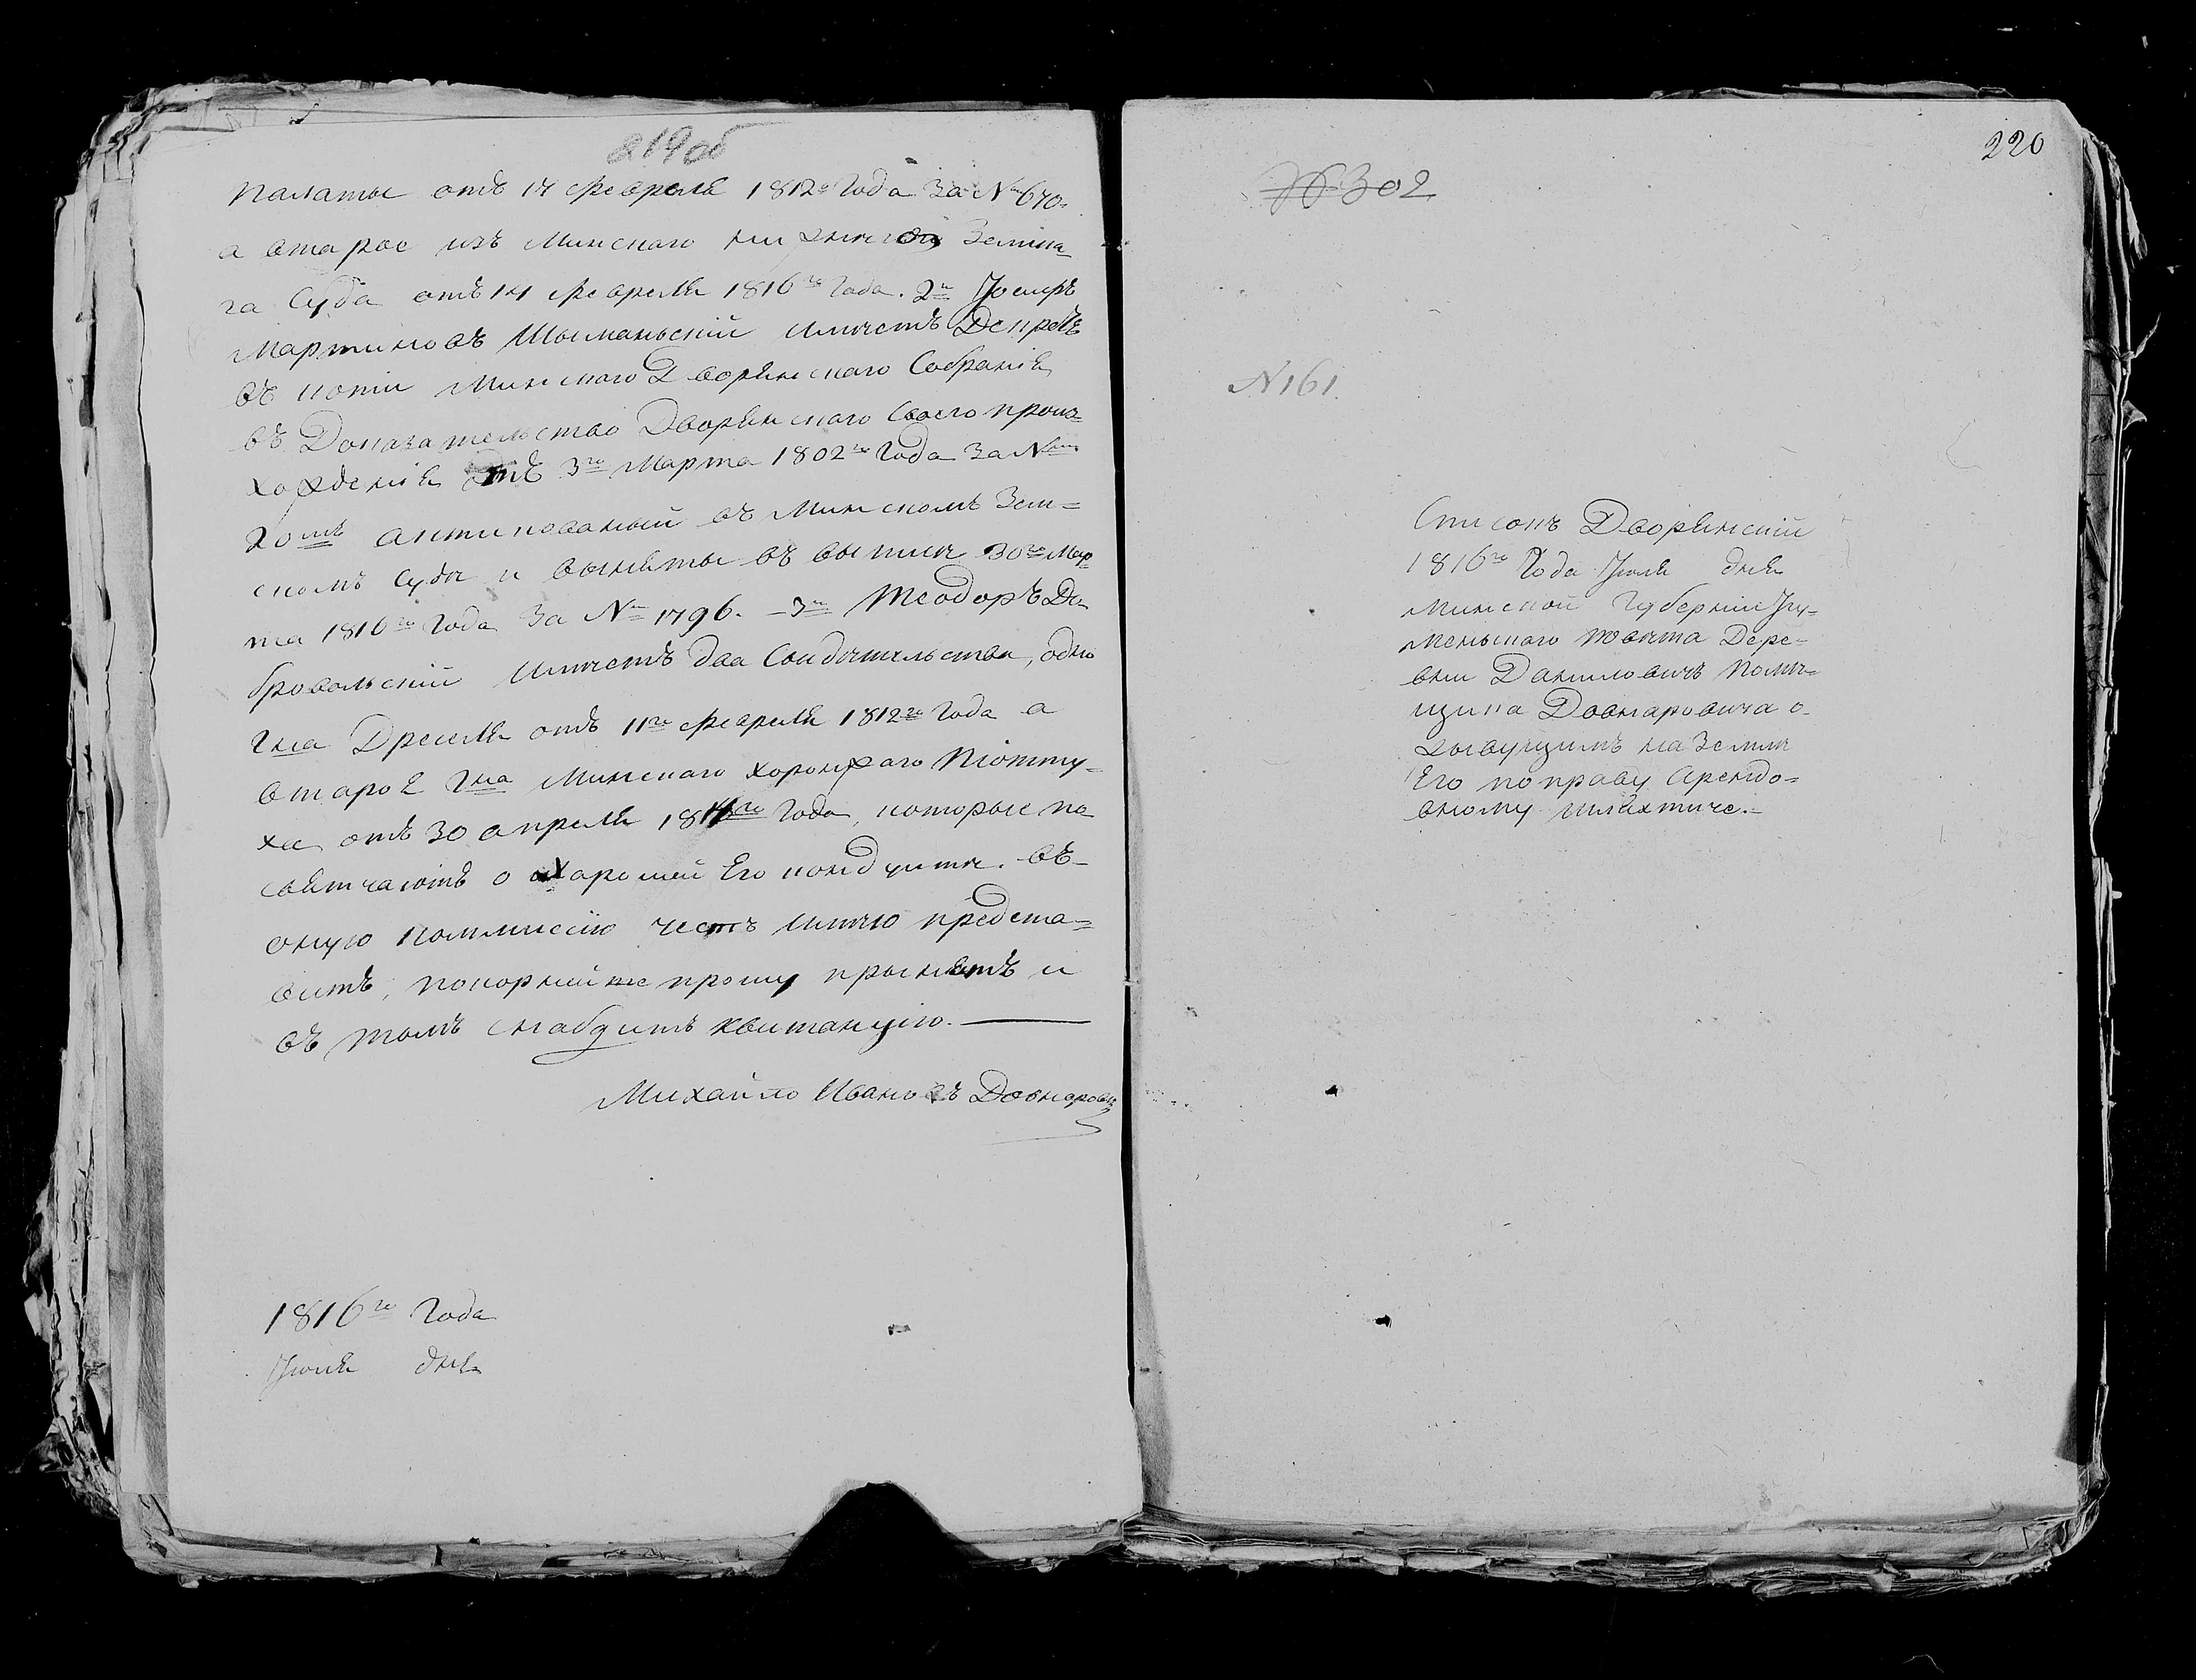 219об
Палаты отъ 14 Февраля 1812го Года За №м 670.
а второе изъ Минскаго нижняго Земска-
га Суда отъ 14 Февраля 1816го Года. 2й Іосифъ
Мартиновъ Шыманьскій имѣетъ Декретъ
въ копіи Минскаго Дворянскаго Собранія
въ Доказательство Дворянскаго Своего проис-
хожденія отъ 3го Марта 1802го Года За №мъ
20мъ актикованый въ Минскомъ Зем-
скомъ Суде и выняты въ выписе 30го Мар-
та 1816го Года За №м 1796. – 3й Теодоръ До-
бровольскій имѣетъ два Свидѣтельства, одно
Гна Дреселя отъ 11го Февраля 1812го Года а
второе Гна Минскаго хорунжаго Піотту-
ха отъ 30 апреля 18 го Года, которые по
свѣтчаютъ о харошей Его кондуите. въ
оную Коммиссію честь имѣю предста-
вить, покорнейше прошу прынять и
въ томъ снабдить квитанцію.
Михайло Ивановъ Довнаровичъ
1816го Года
Іюля дня
220
302
№161.
Списокъ Дворянскій
1816го Года Іюля дня
Минской Губерніи Игу-
меньскаго повѣта Дере-
вни Даниловичъ Помѣ-
щика Довнаровича о
жывущимъ на Земли
Его по праву арендо-
вному шляхтиче.